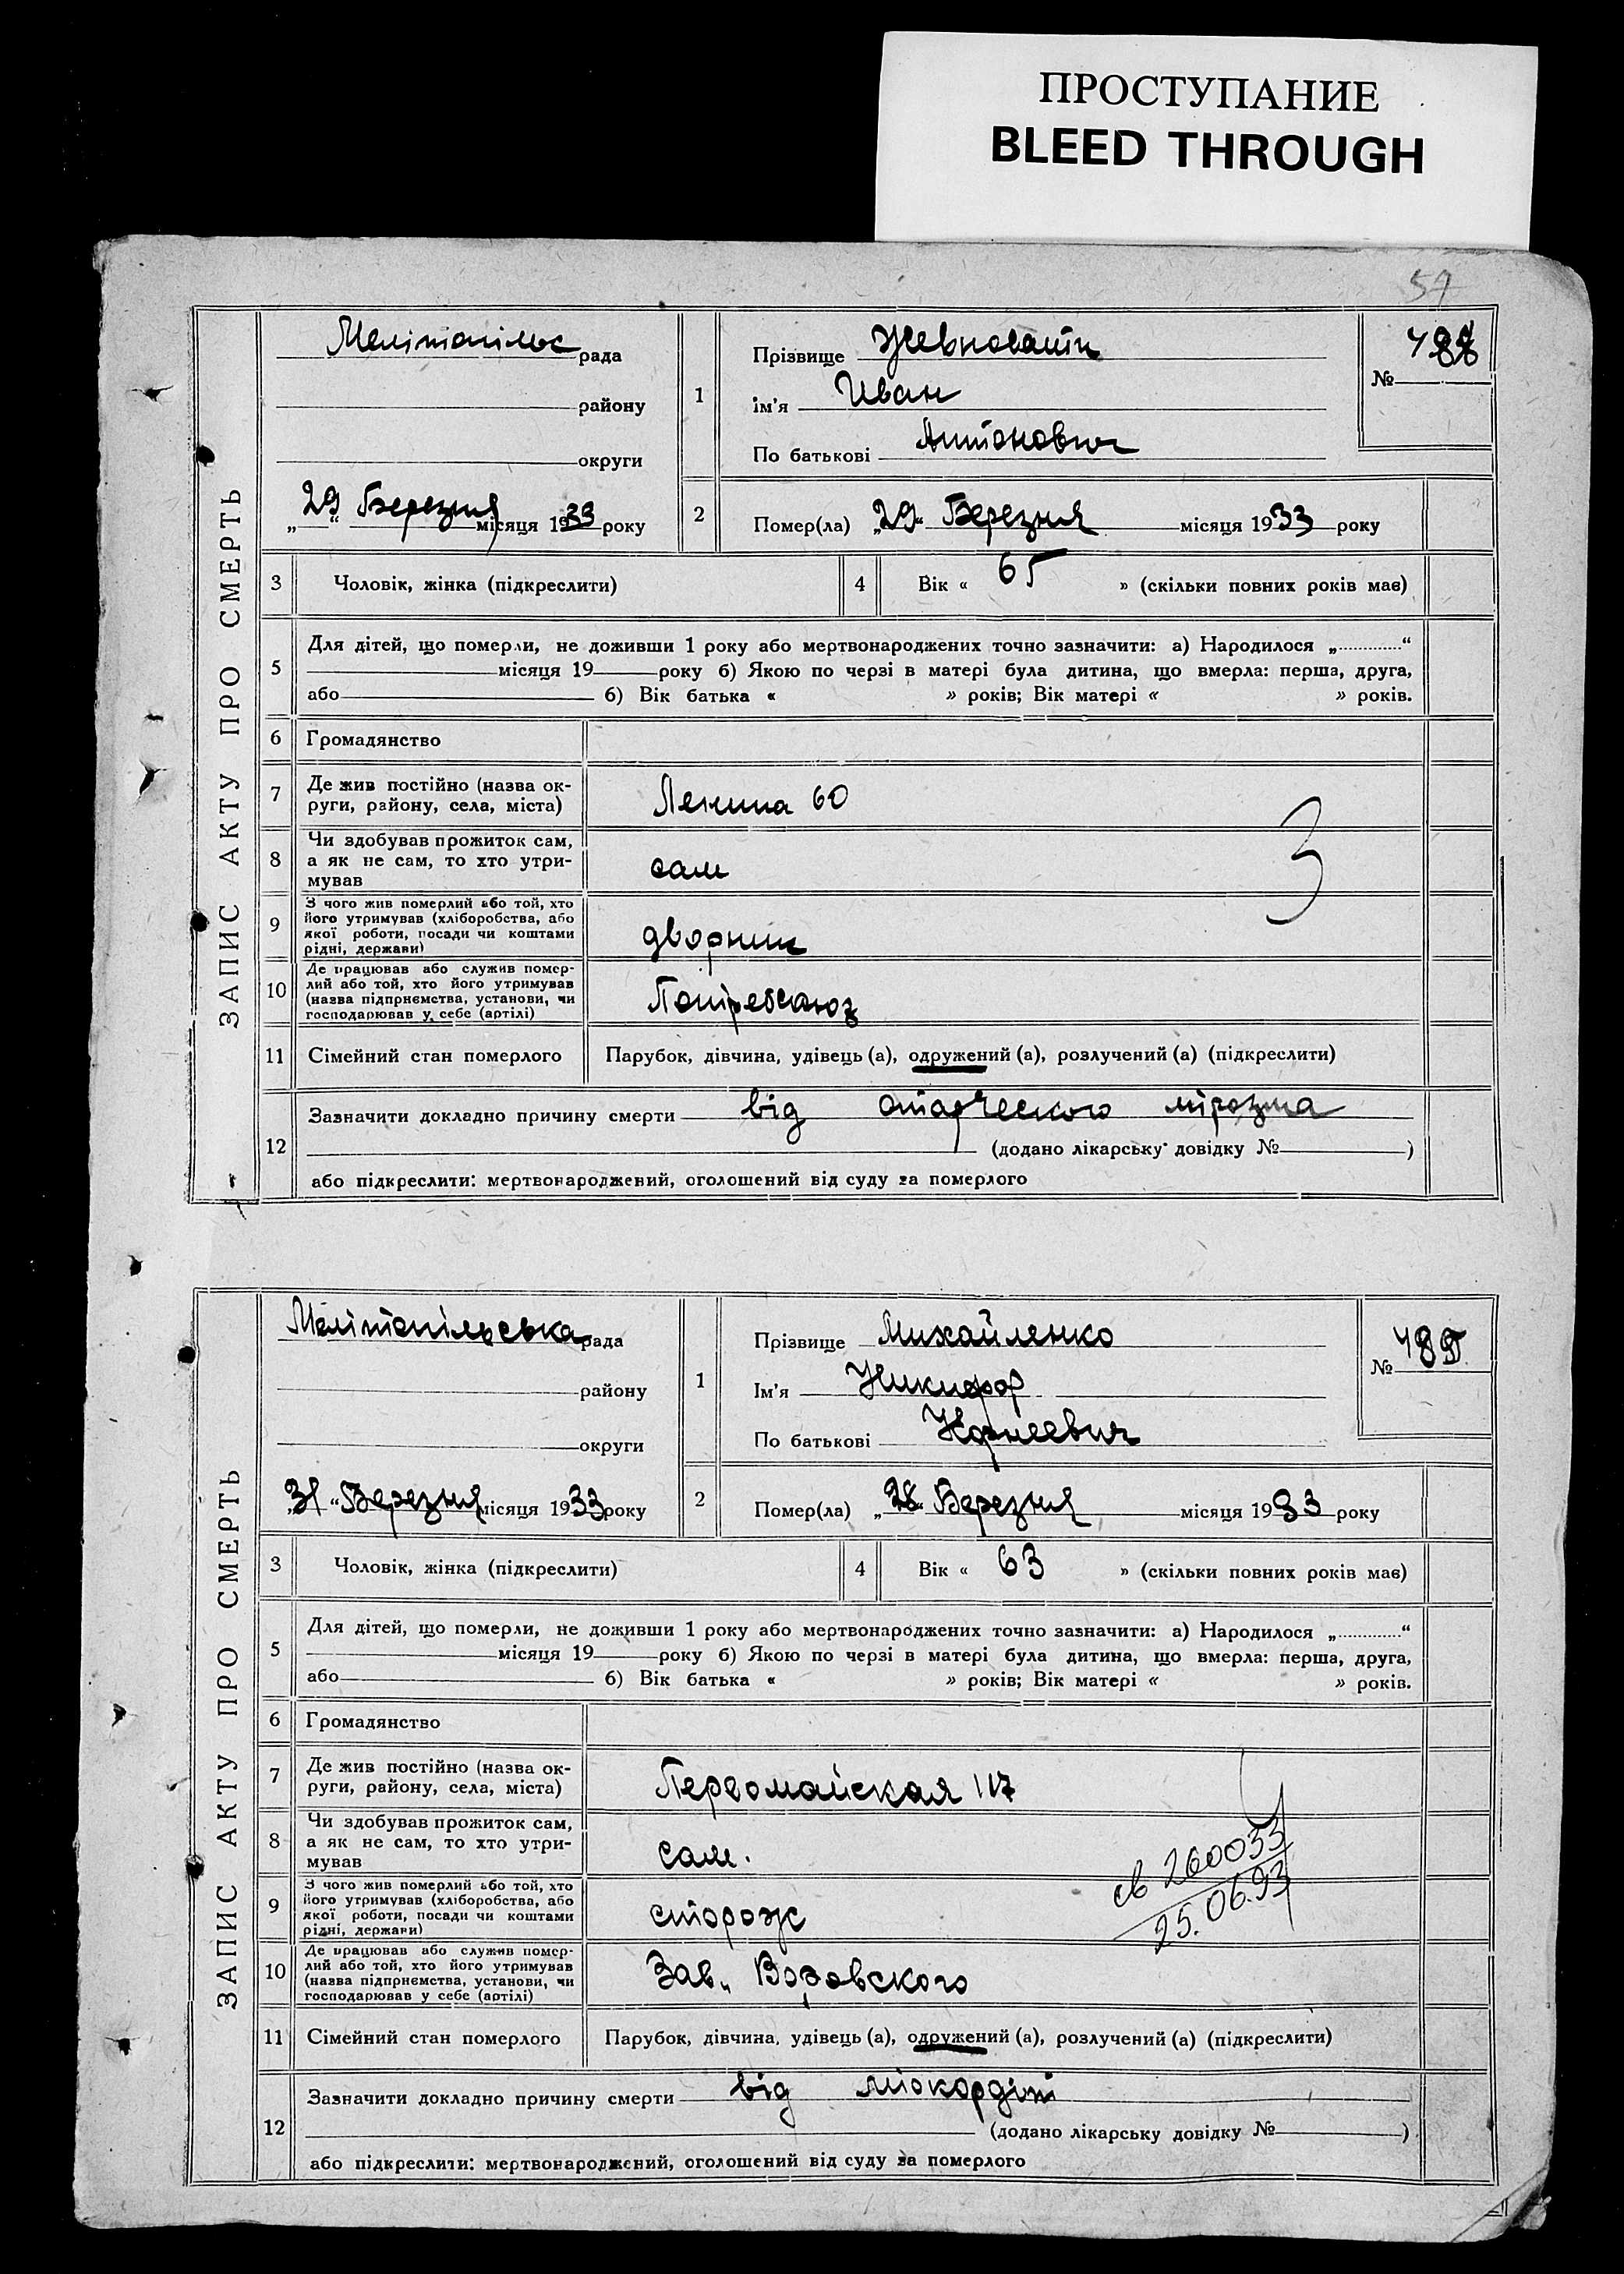 ПРОСТУПАНИЕ
BLEED THROUGH
57
ЗАПИС АКТУ ПРО СМЕРТЬ
Мелітопільс рада
району
округи
„29“ Березня місяця 1933 року
1
Прізвище
ім'я Иван
По батькові Антонович
№ 488
2
Помер(ла) „29“ Березня місяця 1933 року
3 Чоловік, жінка (підкреслити)
4 Вік « 65 » (скільки повних років має)
5 Для дітей, що померли, не доживши 1 року або мертвонароджених точно зазначити: а) Народилося „............“
місяця 19 року б) Якою по черзі в матері була дитина, що вмерла: перша, друга,
або б) Вік батька « » років; Вік матері « » років.
6 Громадянство
7 Де жив постійно (назва ок-
руги, району, села, міста)
Ленина 60
8 Чи здобував прожиток сам,
а як не сам, то хто утри-
мував
сам
3
9 З чого жив померлий або той, хто
його утримував (хліборобства, або
якої роботи, посади чи коштами
рідні, держави)
дворник
10 Де працював або служив помер-
лий або той, хто його утримував
(назва підприємства, установи, чи
господарював у себе (артілі)
11 Сімейний стан померлого
Парубок, дівчина, удівець (а), одружений (а), розлучений (а) (підкреслити)
12 Зазначити докладно причину смерти від старческого
(додано лікарську довідку № )
або підкреслити: мертвонароджений, оголошений від суду за померлого
ЗАПИС АКТУ ПРО СМЕРТЬ
Мелітопільська рада
району
округи
„31“ Березня місяця 1933 року
1
Прізвище Михайленко
Ім'я Никифор
По батькові Корнеевич
№ 489
2
Помер(ла) „28“ Березня місяця 1933 року
3 Чоловік, жінка (підкреслити)
4 Вік « 63 » (скільки повних років має)
5 Для дітей, що померли, не доживши 1 року або мертвонароджених точно зазначити: а) Народилося „............“
місяця 19 року б) Якою по черзі в матері була дитина, що вмерла: перша, друга,
або б) Вік батька « » років; Вік матері « » років.
6 Громадянство
7 Де жив постійно (назва ок-
руги, району, села, міста)
Первомайская 117
8 Чи здобував прожиток сам,
а як не сам, то хто утри-
мував
сам.
св 260033
25.06.93
9 З чого жив померлий або той, хто
його утримував (хліборобства, або
якої роботи, посади чи коштами
рідні, держави)
сторож
10 Де працював або служив помер-
лий або той, хто його утримував
(назва підприємства, установи, чи
господарював у себе (артілі)
Зав. Воровского
11 Сімейний стан померлого
Парубок, дівчина, удівець (а), одружений (а), розлучений (а) (підкреслити)
12 Зазначити докладно причину смерти від міокардіт
(додано лікарську довідку № )
або підкреслити: мертвонароджений, оголошений від суду за померлого